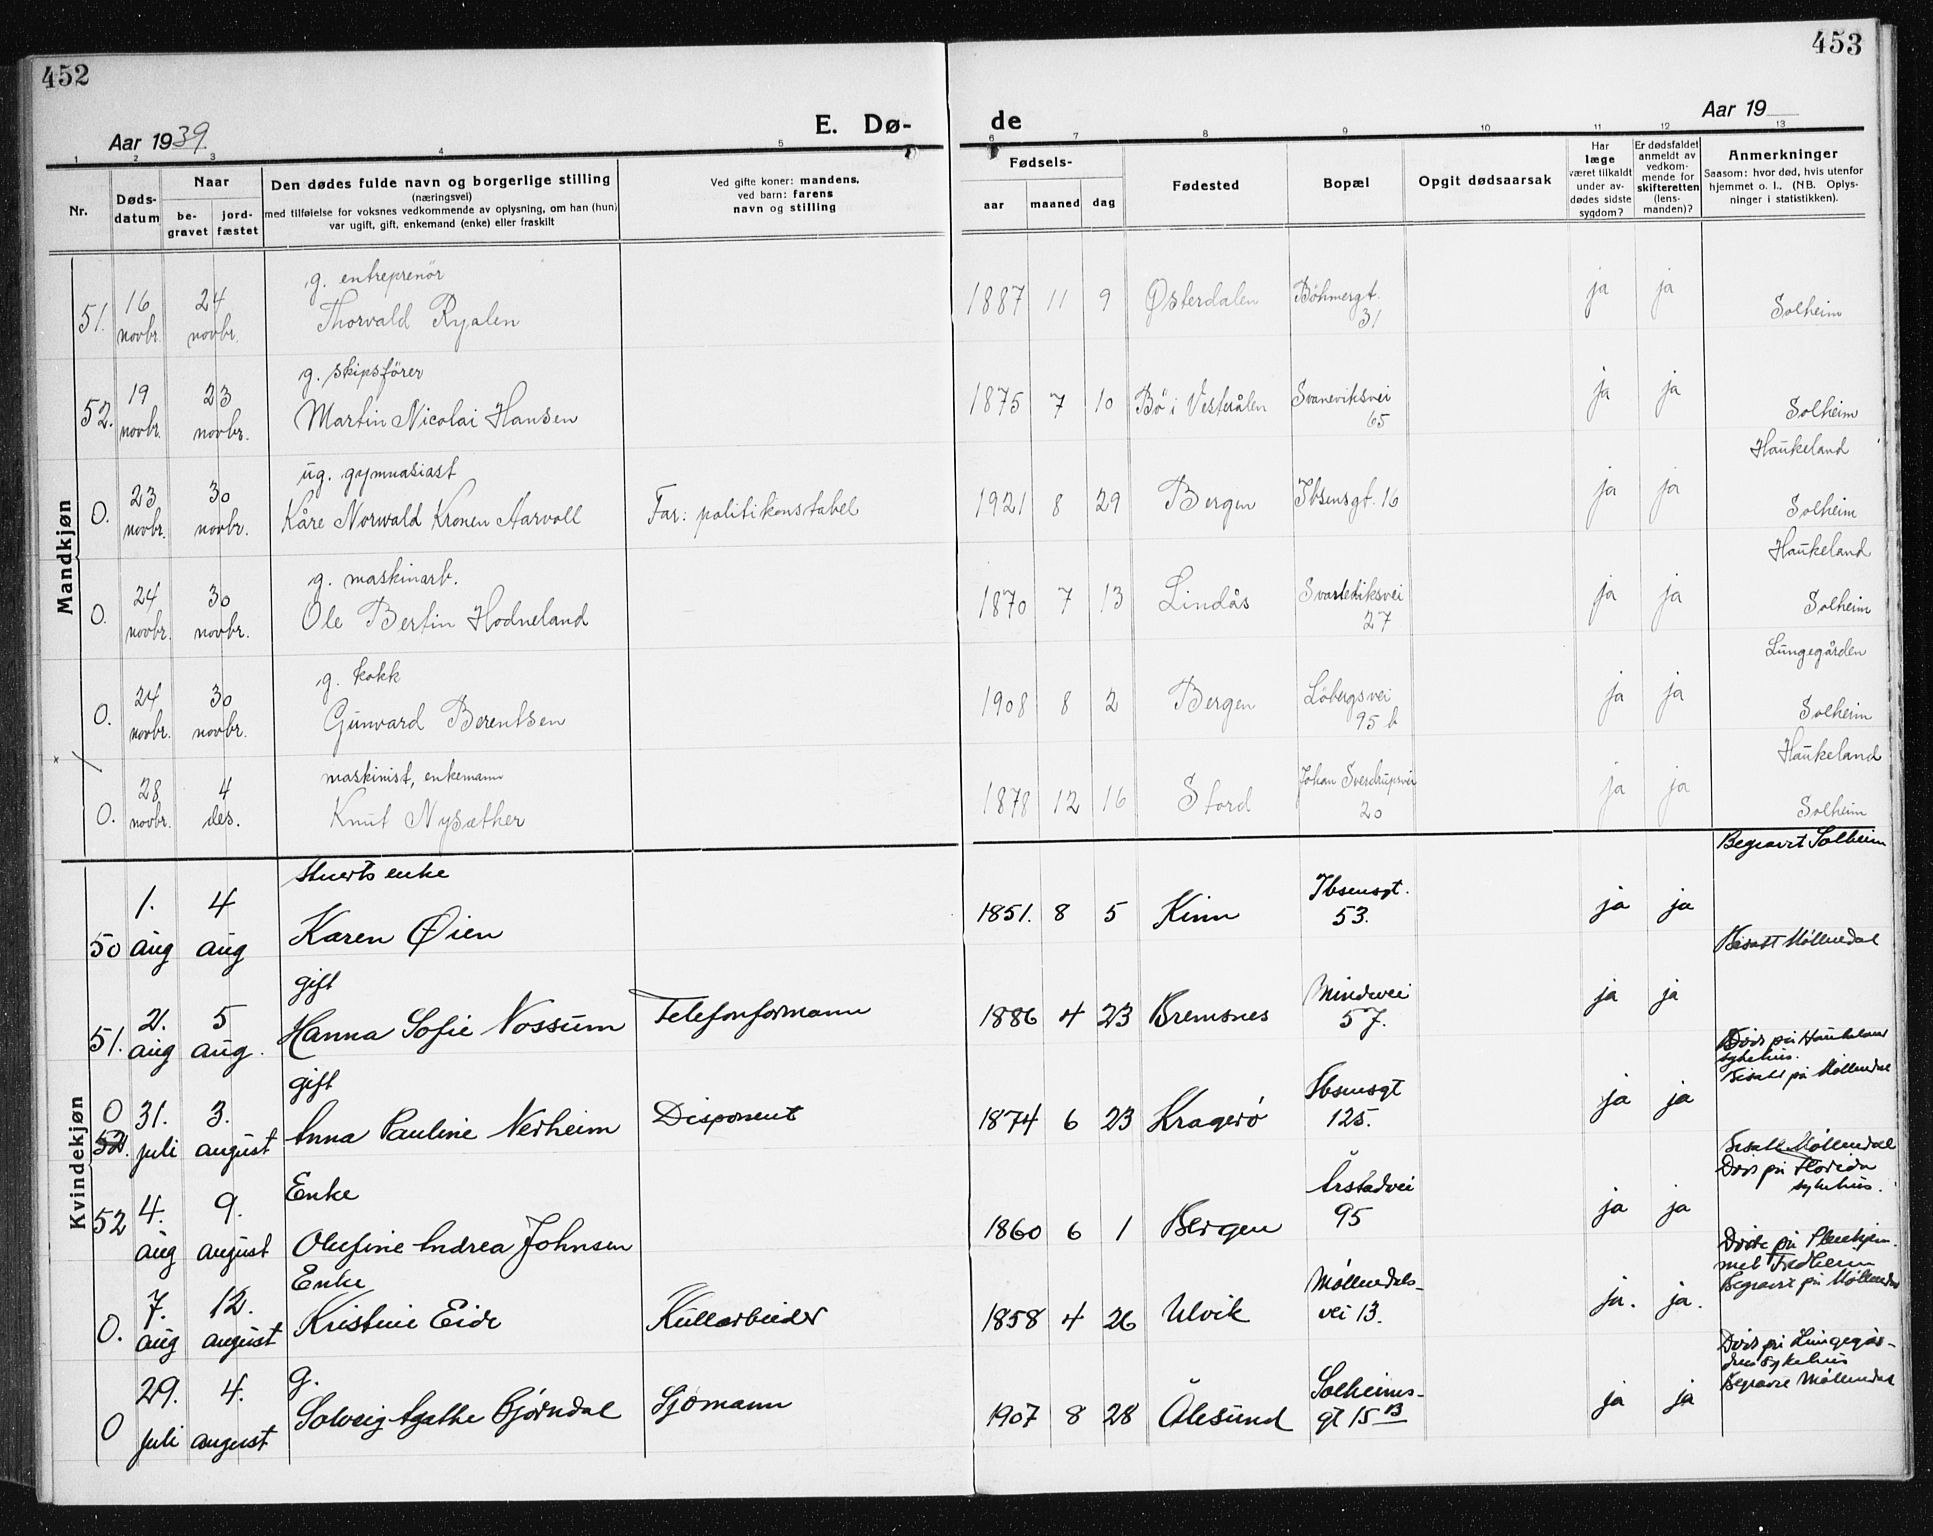 452
453
Aar 1939.
E. Dø-
de
Aar 19
1 2 3 4 5 6 7 8 9 10 11 12 13
Nr.
Døds-
datum
Naar
be-
gravet
jord-
fæstet
Den dødes fulde navn og borgerlige stilling
(næringsvei)
med tilføielse for voksnes vedkommende av oplysning, om han (hun)
var ugift, gift, enkemand (enke) eller fraskilt
Ved gifte koner: mandens,
ved barn: farens
navn og stilling
Fødsels-
aar maaned dag
Fødested
Bopæl
Opgit dødsaarsak
Har
læge
været tilkaldt
under av-
dødes sidste
sygdom?
Er dødsfaldet
anmeldt av
vedkom-
mende for
skifteretten
(lens-
manden)?
Anmerkninger
Saasom: hvor død, hvis utenfor
hjemmet o. l., (NB. Oplys-
ninger i statistikken).
Mandkjøn
g. entreprenör
51. 16 novbr. 24 novbr. Thorvald Ryalen 1887 11 9 Østerdalen Böhmergt. 31 ja ja Solheim
g. skipsförer
52. 19 novbr. 23 novbr. Martin Nicolai Hansen 1875 7 10 Bö i Vesterålen Svaneviksvei 65 ja ja Solheim
Haukeland
ug. gymnasiast
0. 23 novbr. 30 novbr. Kåre Norwald Kronen Aarvoll Far: politikonstabel 1921 8 29 Bergen Ibsensgt. 16 ja ja Solheim
Haukeland
g. maskinarb.
0. 24 novbr. 30 novbr. Ole Bertin Hodneland 1870 7 13 Lindås 27 ja ja Solheim
Lungegården
g. kokk
0. 24 novbr. 30 novbr. Gunvard Berentsen 1908 8 2 Bergen Löbergsvei 95 b ja ja Solheim
Haukeland
maskinist, enkemann
0. 28 novbr. 4 des. Knut Nysæther 1878 12 16 Stord Johan Sverdrupsvei 20 ja ja Solheim
Kvindekjøn
Begravet Solheim
enke
50 1. aug 4 aug Karen Øien 1851. 8 5 Kinn Ibsensgt. 53. ja ja
Bisatt Møllendal
gift
51. 2. aug 5 aug. Hanna Sofie Nossum Telefonformann 1886 4 23 Bremsnes Mindevei 57. ja ja
Död på Haukeland
sykehus.
Bisatt på Møllendal
gift
0 52. 31. juli 3. august Anna Pauline Nerheim Disponent 1874 6 23 Kragerö Ibsensgt 125. ja ja
Bisatt Møllendal
Död på Florida
sykehus.
Enke
52 4. aug 9. august Olufine Andrea Johnsen 1860 6 1 Bergen Årstadvei 95 ja ja
Döde på Pleiehjem-
met Fredheim
Begravet på Møllendal
Enke
0. 7. aug 12. august Kristine Eide Kullarbeider 1858 4 26 Ulvik Møllendals-
vei 13. ja. ja.
Död på Lungegår-
dens sykehus
Begravet Møllendal
g.
0 29. juli 4. august Solveig Agathe Gjörndal Sjömann 1907 8 28 Ålesund Solheims-
gt 15 B ja ja